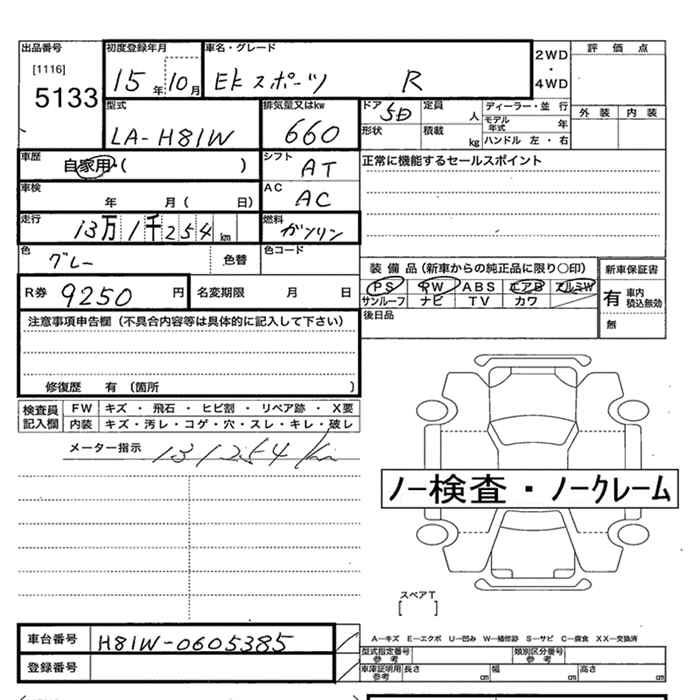 出品番号 初度登録年月 車名・グレード 評価点
[1116] 5133 15年10月 EKスポーツ R 2WD・4WD
型式 排気量又はkw ドア 定員 ディーラー・並行 外装 内装
LA-H81W 660 5D 人 モデル年式 年
形状 積載 kg ハンドル 左・右
車歴 自家用・( ) シフト AT 正常に機能するセールスポイント
車検 年 月( 日) AC AC
走行 13万1千254km 燃料 ガソリン
色 グレー 色替 色コード
装備品(新車からの純正品に限り○印) 新車保証書
R券 9250円 名変期限 月 日 PS PW ABS エアB アルミW 有 車内積込無効
サンルーフ ナビ TV カワ
注意事項申告欄(不具合内容等は具体的に記入して下さい) 後日品 無
修復歴 有(箇所 )
検査員記入欄 FW キズ・飛石・ヒビ割・リペア跡・X要
内装 キズ・汚レ・コゲ・穴・スレ・キレ・破レ
メーター指示 131254km
ノー検査・ノークレーム
スペアT
[ ]
車台番号 H81W-0605385 A―キズ E―エクボ U―凹み W―補修跡 S―サビ C―腐食 XX―交換済
登録番号 型式指定番号 参考 類別区分番号 参考
車庫証明用 参考 長さ cm 幅 cm 高さ cm